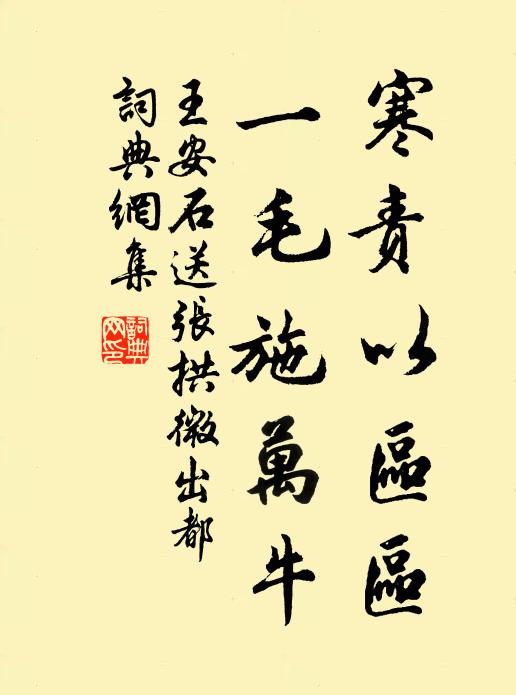 寒責以區區
一毛施萬牛
王安石送張拱微出都
詞典網集
詞典
网印